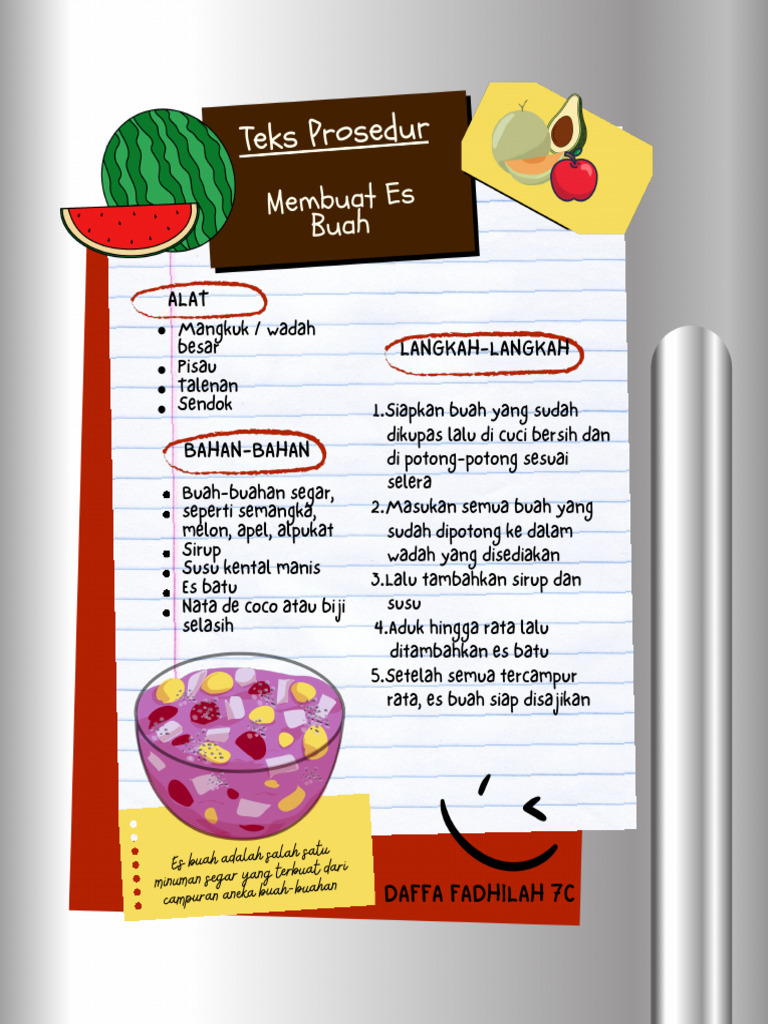 Teks Prosedur
Membuat Es
Buah
ALAT
Mangkuk / wadah
besar
Pisau
Talenan
Sendok
BAHAN-BAHAN
Buah-buahan segar,
seperti semangka,
melon, apel, alpukat
Sirup
Susu kental manis
Es batu
Nata de coco atau biji
selasih
LANGKAH-LANGKAH
1.Siapkan buah yang sudah
dikupas lalu di cuci bersih dan
di potong-potong sesuai
selera
2.Masukan semua buah yang
sudah dipotong ke dalam
wadah yang disediakan
3.Lalu tambahkan sirup dan
susu
4.Aduk hingga rata lalu
ditambahkan es batu
5.Setelah semua tercampur
rata, es buah siap disajikan
Es buah adalah salah satu
minuman segar yang terbuat dari
campuran aneka buah-buahan
DAFFA FADHILAH 7C